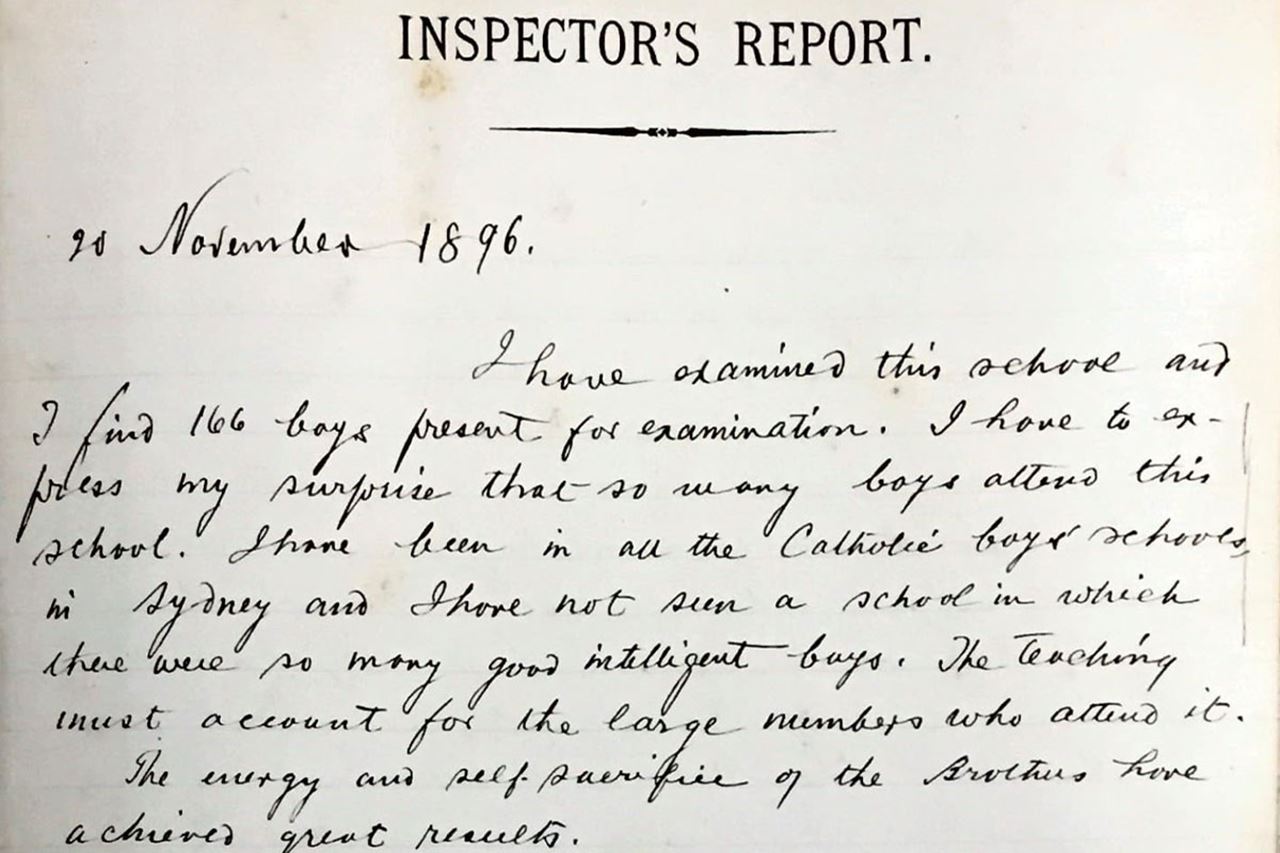 INSPECTOR'S REPORT.
20 November 1896.
I have examined this school and
I find 166 boys present for examination. I have to ex-
press my surprise that so many boys attend this
school. I have been in all the Catholic boys' schools,
in Sydney and I have not seen a school in which
there were so many good intelligent boys. The teaching
must account for the large numbers who attend it.
The energy and self-sacrifice of the Brothers have
achieved great results.